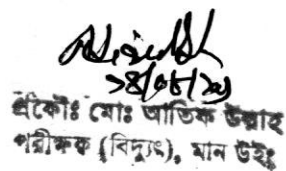 প্রকৌঃ মোঃ আতিক উল্লাহ
পরীক্ষক (বিদ্যুৎ), মান উইং